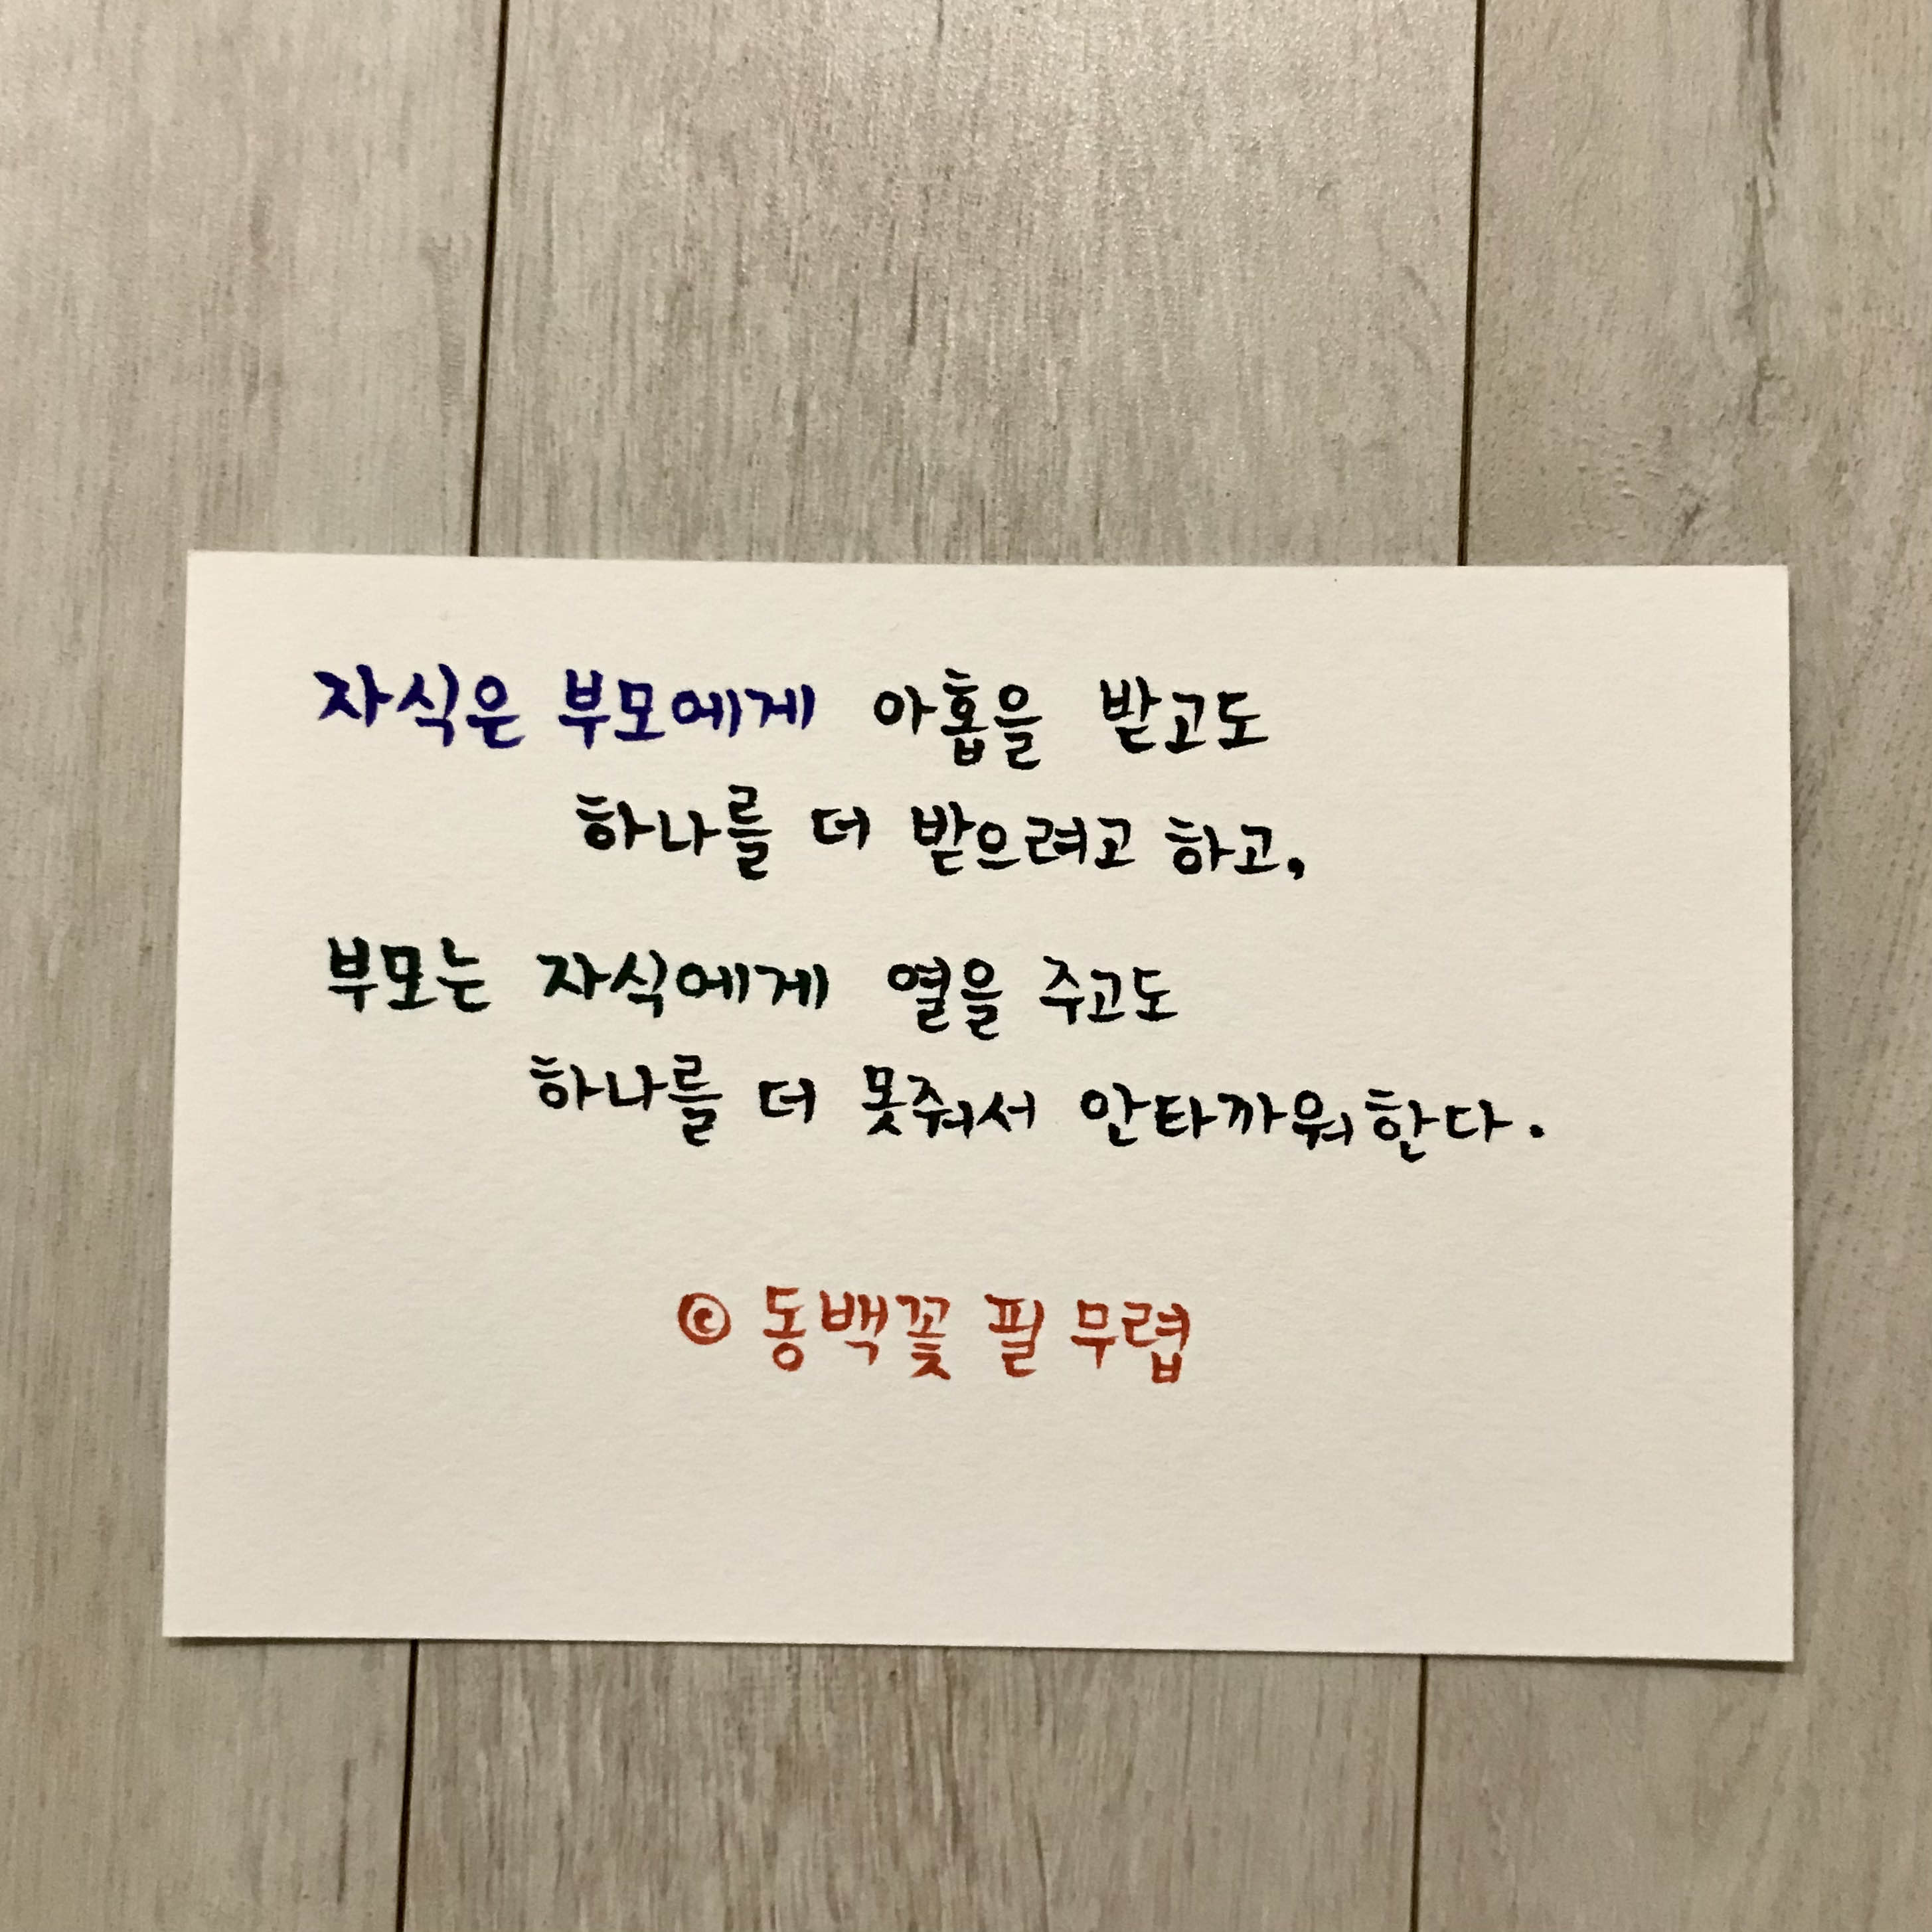 자식은 부모에게 아홉을 받고도
하나를 더 받으려고 하고,
부모는 자식에게 열을 주고도
하나를 더 못줘서 안타까워한다.
© 동백꽃 필 무렵